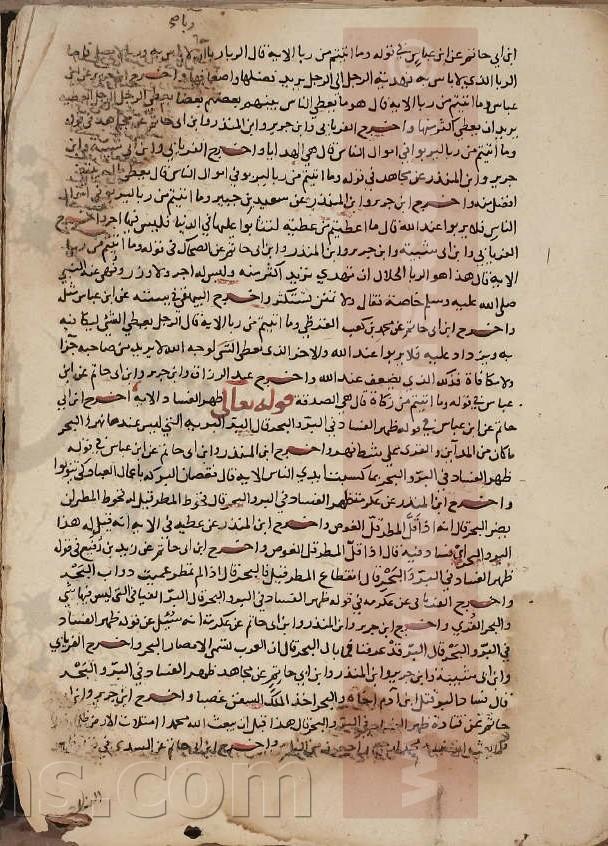 ابى حاتم عن ابن عباس فى قوله وما اتيتم من ربا الاية قال الربا ربا ان لا باس به وربا لا يصلح فاما
الربا الذى لا باس به فهدية الرجل الى الرجل يريد فضلها واضعافها واخرج ابن جرير عن ابن
عباس وما اتيتم من ربا الاية قال هو ما يعطى الناس بينهم بعضهم بعضا يعطى الرجل الرجل العطية
يريد ان يعطى اكثر منها واخرج الفريابى وابن جرير وابن المنذر وابن ابى حاتم عن مجاهد فى قوله
وما اتيتم من ربا ليربوا فى اموال الناس قال هى الهدايا واخرج الفريابى وابن ابى شيبة وابن
جرير وابن المنذر عن مجاهد فى قوله وما اتيتم من ربا ليربوا فى اموال الناس قال يعطى
افضل منه واخرج ابن جرير وابن المنذر عن سعيد بن جبير وما اتيتم من ربا ليربوا فى اموال
الناس فلا يربوا عند الله قال ما اعطيتم من عطية لتثابوا عليها فى الدنيا فليس فيها اجر واخرج
الفريابى وابن ابى شيبة وابن جرير وابن المنذر وابن ابى حاتم عن الضحاك فى قوله وما اتيتم من ربا
الاية قال هذا هو الربا الحلال ان تهدى تريد اكثر منه وليس له اجر ولا وزر ونهى عنه النبى
صلى الله عليه وسلم خاصة فقال ولا تمنن تستكثر واخرج البيهقى فى سننه عن ابن عباس مثله
واخرج ابن ابى حاتم عن محمد بن كعب القرظى وما اتيتم من ربا الاية قال الرجل يعطى الشئ ليكافيه
به ويزداد عليه فلا يربوا عند الله والاخر الذى يعطى الشئ لوجه الله لا يريد من صاحبه جزا
ولا مكافاة فذلك الذى يضعف عند الله واخرج عبد الرزاق وابن جرير وابن ابى حاتم عن ابن
عباس فى قوله وما اتيتم من زكاة قال هى الصدقة قوله تعالى ظهر الفساد الاية اخرج ابن ابى
حاتم عن ابن عباس فى قوله ظهر الفساد فى البر والبحر قال البر البرية التى ليس عندها نهر والبحر
ما كان من المداين والقرى على شط نهر واخرج ابن المنذر وابن ابى حاتم عن ابن عباس فى قوله
ظهر الفساد فى البر والبحر بما كسبت ايدى الناس الاية قال نقصان البركة باعمال العباد كى يتوبوا
واخرج ابن المنذر عن عكرمة ظهر الفساد فى البر والبحر قال قحوط المطر قيل له قحوط المطر لن
يضر البحر قال انه اذا قل المطر قل الغوص واخرج ابن المنذر عن عطية فى الاية انه قيل له هذا
البر والبحر اى فساد فيه قال اذا قل المطر قل الغوص واخرج ابن ابى حاتم عن زيد بن رفيع فى قوله
ظهر الفساد فى البر والبحر قال انقطاع المطر قيل فالبحر قال اذا لم تمطر عميت دواب البحر
واخرج الفريابى عن عكرمة فى قوله ظهر الفساد فى البر والبحر قال البر الفيافى التى ليس فيها شئ
والبحر القرى واخرج ابن جرير وابن المنذر وابن ابى حاتم عن عكرمة انه سئل عن قوله ظهر الفساد
فى البر والبحر قال البر قد عرفنا فما بال البحر قال ان العرب تسمى الامصار البحر واخرج الفريابى
وابن ابى شيبة وابن جرير وابن المنذر وابن ابى حاتم عن مجاهد ظهر الفساد فى البر والبحر
قال فساد البر قتل ابن ادم اخاه والبحر اخذ الملك السفن غصبا واخرج ابن جرير وابن
حاتم عن قتادة ظهر الفساد فى البر والبحر قال هذا قبل ان يبعث الله محمدا امتلات الارض
واخرج ابن ابى حاتم عن السدى فى